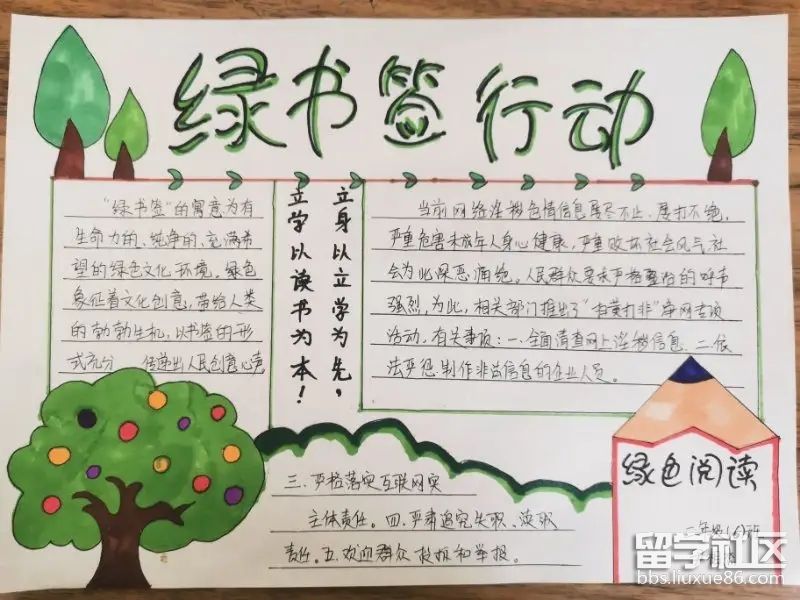 绿书签行动
“绿书签”的寓意为有
生命力的、纯净的、充满希
望的绿色文化环境。绿色
象征着文化创意,带给人类
的勃勃生机,以书签的形
式充分 传递出人民创意心声
立身以立学为先,
立学以读书为本!
当前网络淫秽色情信息屡尽不止、屡打不绝,
严重危害未成年人身心健康,严重败坏社会风气社
会为此深恶痛绝。人民群众要求严格整治的呼声
强烈,为此,相关部门推出了“扫黄打非”净网专项
活动。有关事项:一.全面清查网上淫秽信息、二.依
法严惩制作非法信息的企业人员。
三.严格落实互联网实
主体责任。四.严肃追究失职、渎职
责任。五.欢迎群众投报和举报。
绿色阅读
二年级(6)班
留学社区
bbs.liuxue86.com